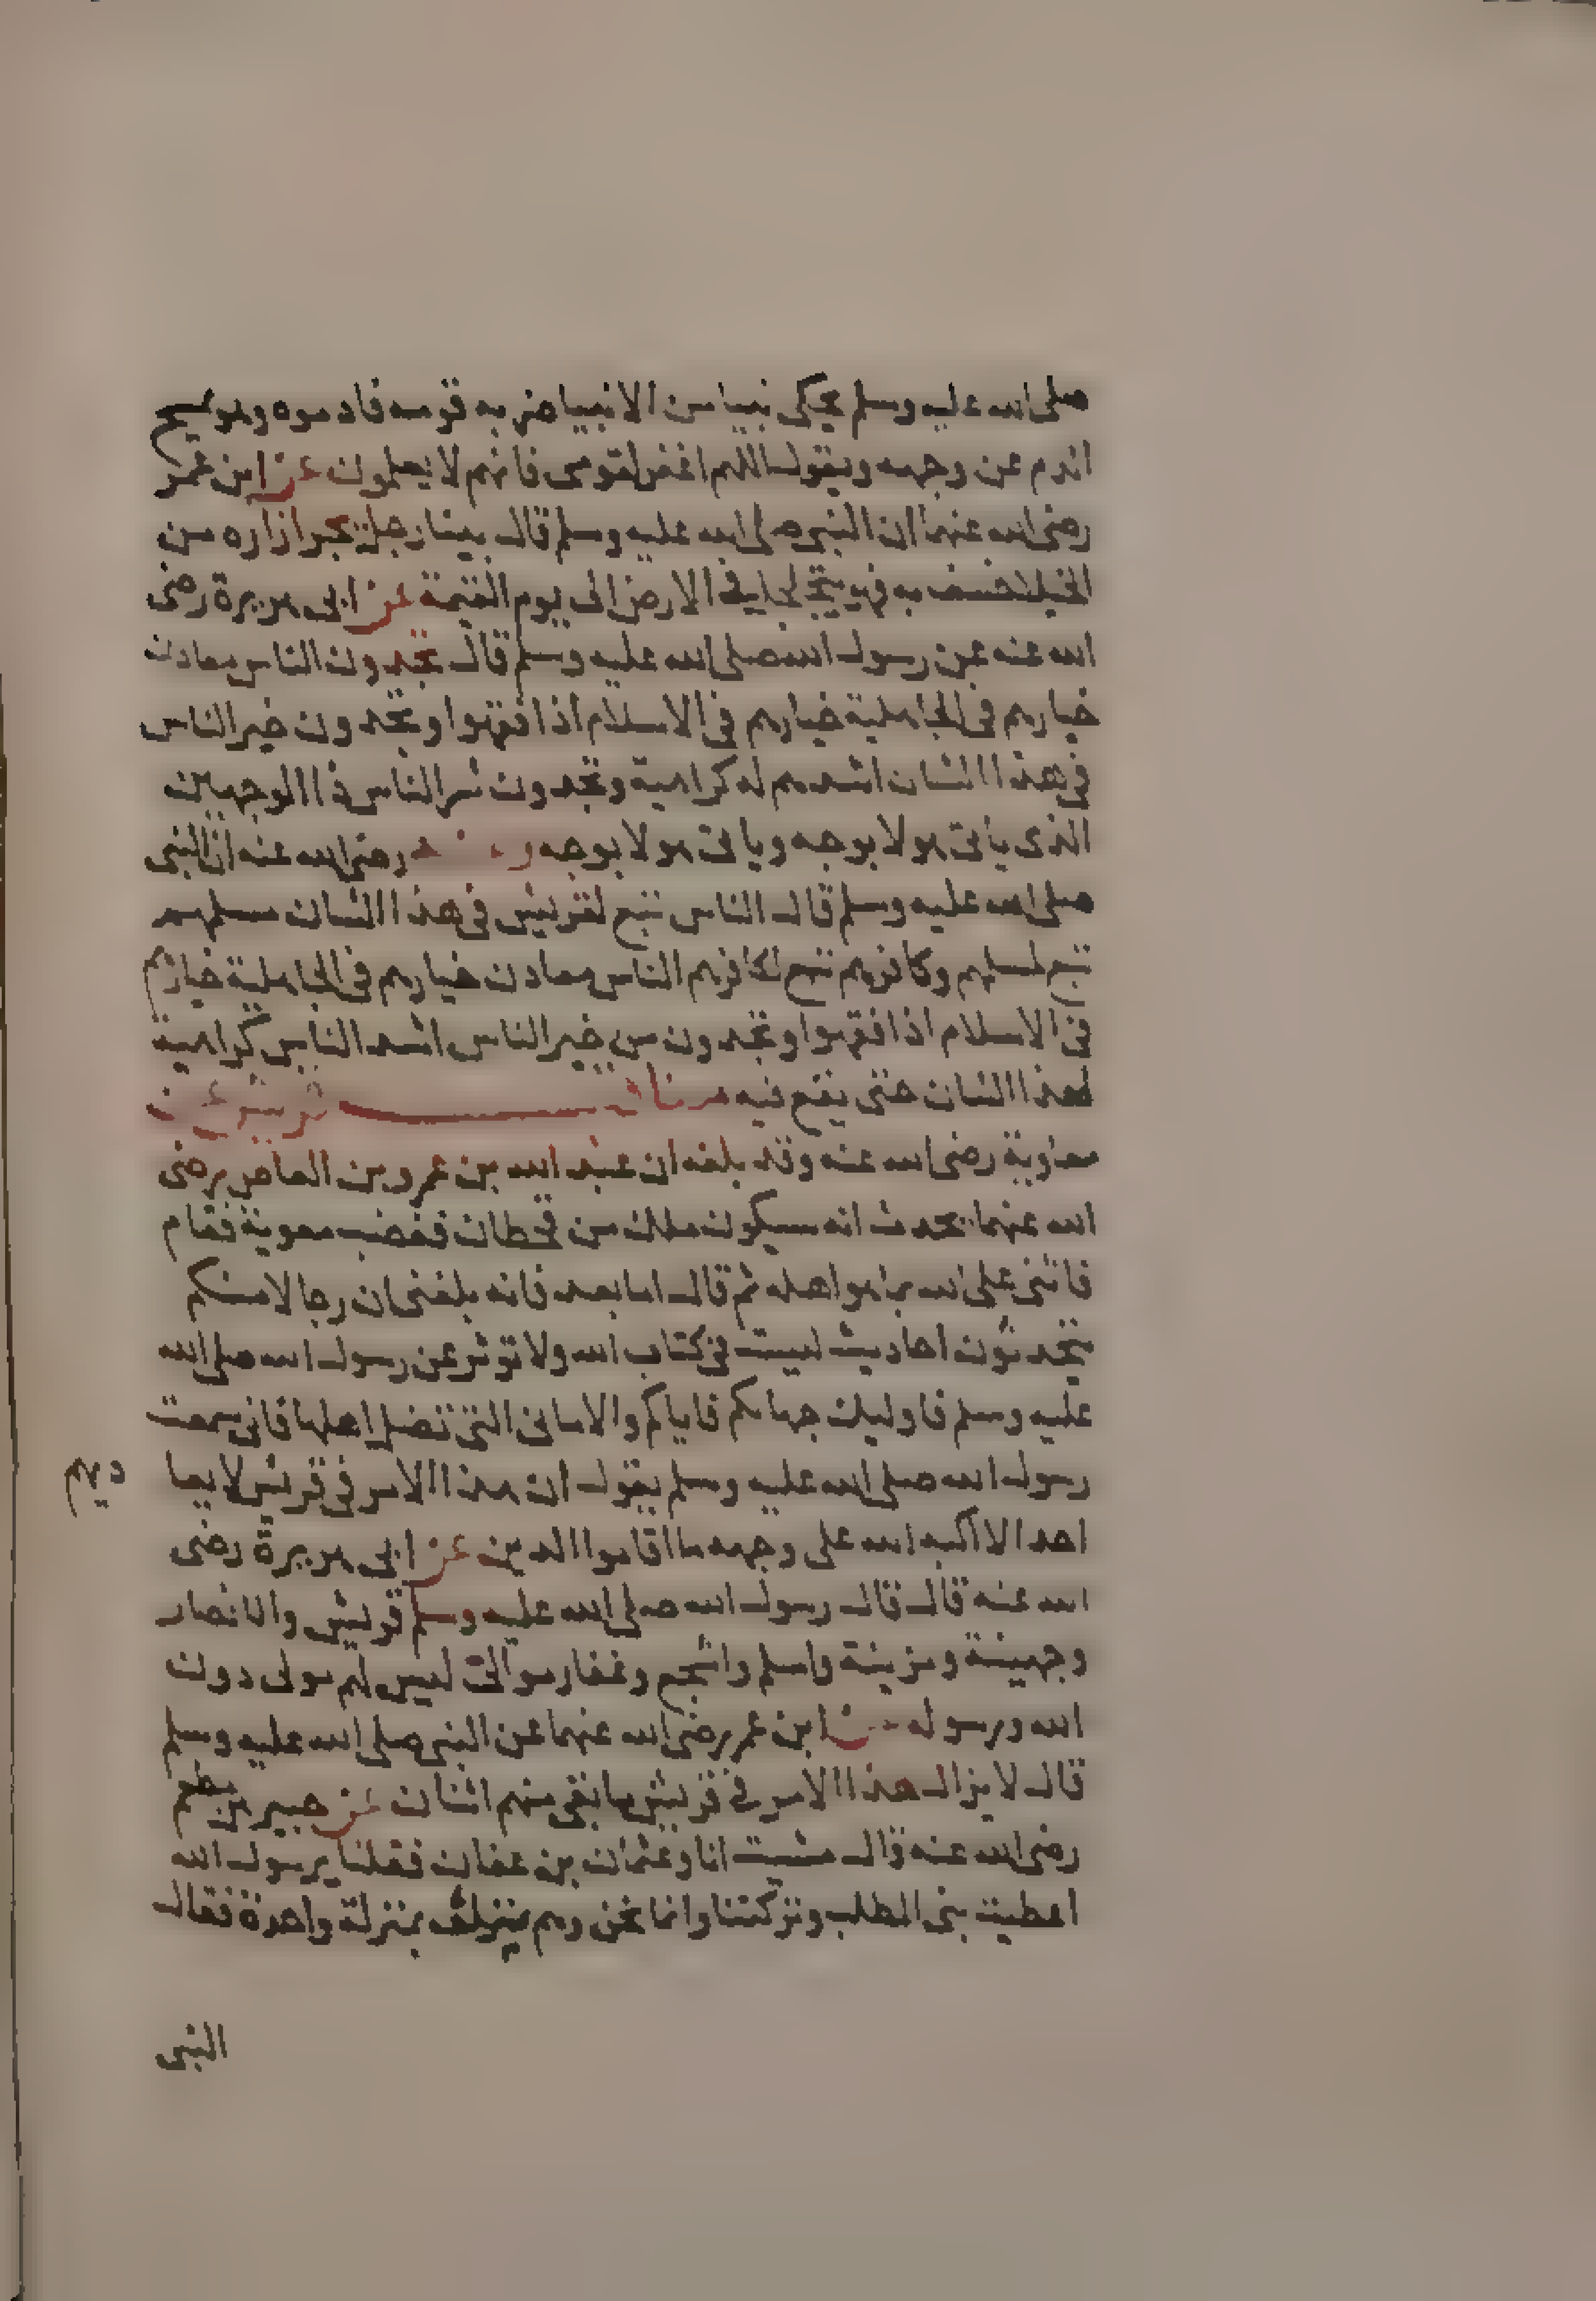 صلى الله عليه وسلم يحكى نبيا من الانبيا ضربه قومه فادموه وهو يمسح
الدم عن وجهه ويقول اللهم اغفر لقومى فانهم لا يعلمون عن ابن عمر
رضى الله عنهما ان النبى صلى الله عليه وسلم قال بينا رجل يجر ازاره من
الخيلا خسف به فهو يتجلجل فى الارض الى يوم القيمة عن ابى هريرة رضى
الله عنه عن رسول الله صلى الله عليه وسلم قال تجدون الناس معادن
خيارهم فى الجاهلية خيارهم فى الاسلام اذا فقهوا وتجدون خير الناس
فى هذا الشان اشدهم له كراهية وتجدون شر الناس ذا الوجهين
الذى ياتى هولا بوجه وياتى هولا بوجه وعنه رضى الله عنه ان النبى
صلى الله عليه وسلم قال الناس تبع لقريش فى هذا الشان مسلمهم
تبع لمسلمهم وكافرهم تبع لكافرهم الناس معادن خيارهم فى الجاهلية خيارهم
فى الاسلام اذا فقهوا وتجدون من خير الناس اشد الناس كراهية
لهذا الشان حتى يقع فيه مناقب قريش عن
معاوية رضى الله عنه وقد بلغه ان عبد الله بن عمرو بن العاص رضى
الله عنهما يحدث انه سيكون ملك من قحطان فغضب معوية فقام
فاثنى على الله بما هو اهله ثم قال اما بعد فانه بلغنى ان رجالا منكم
يتحدثون احاديث ليست فى كتاب الله ولا توثر عن رسول الله صلى الله
عليه وسلم فاوليك جهالكم فاياكم والامانى التى تضل اهلها فانى سمعت
رسول الله صلى الله عليه وسلم يقول ان هذا الامر فى قريش لا يعا
ديهم
احد الا اكبه الله على وجهه ما اقاموا الدين عن ابى هريرة رضى
الله عنه قال قال رسول الله صلى الله عليه وسلم قريش والانصار
وجهينة ومزينة واسلم واشجع وغفار موالى ليس لهم مولى دون
الله ورسوله عن ابن عمر رضى الله عنهما عن النبى صلى الله عليه وسلم
قال لا يزال هذا الامر فى قريش ما بقى منهم اثنان عن جبير بن مطعم
رضى الله عنه قال مشيت انا وعثمان بن عفان فقلنا يرسول الله
اعطيت بنى المطلب وتركتنا وانما نحن وهم منك بمنزلة واحدة فقال
النبى